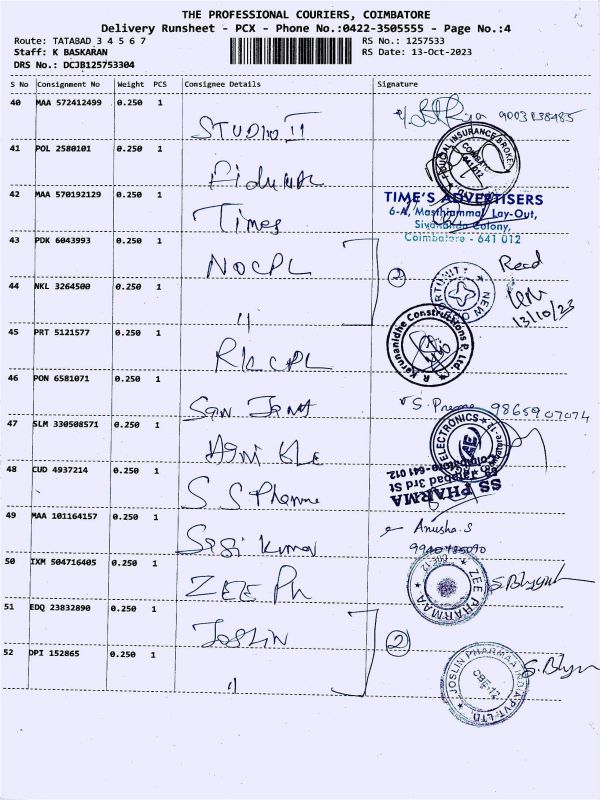 THE PROFESSIONAL COURIERS, COIMBATORE
Delivery Runsheet - PCX - Phone No.:0422-3505555 - Page No.:4
Route: TATABAD 3 4 5 6 7
RS No.: 1257533
Staff: K BASKARAN
RS Date: 13-Oct-2023
DRS No.: DCJB125753304
S No Consignment No Weight PCS Consignee Details Signature
40 MAA 572412499 0.250 1 STUDIO II
41 POL 2580101 0.250 1
42 MAA 570192129 0.250 1 Times
TIME'S ADVERTISERS
6-A, Masthiammal Lay-Out,
Sivananda Colony,
Coimbatore - 641 012
43 PDK 6043993 0.250 1 NOCPL
2
44 NKL 3264500 0.250 1 "
NEW OPPORTUNITY
13/10/23
45 PRT 5121577 0.250 1 RKCPL
R. Karunanidhe Constructions P. Ltd.
46 PON 6581071 0.250 1
9865907074
47 SLM 330508571 0.250 1
ELECTRONICS
48 CUD 4937214 0.250 1 S S Pharma
SS PHARMA
Tatabad 3rd St
Coimbatore-641 012
49 MAA 101164157 0.250 1 Sasi Kumar
Anusha.S
50 IXM 504716405 0.250 1 ZEE Ph
ZEE PHARMAA
CBE-12
51 EDQ 23832890 0.250 1 Joslin
2
52 DPI 152865 0.250 1 "
JOSLIN PHARMAA INDIA PVT-LTD.
CBE-12